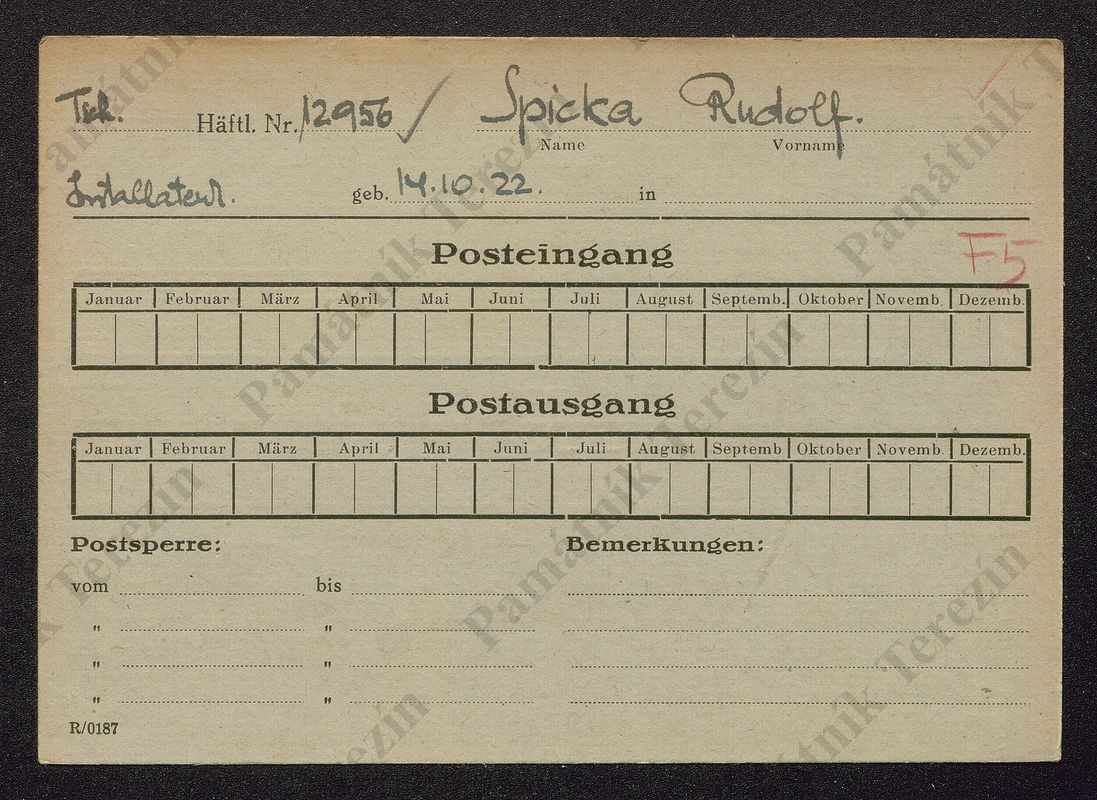 Tsch. Häftl. Nr. 12956 Spicka Rudolf.
Name Vorname
Installateur. geb. 14.10.22. in
Posteingang
F5
Januar Februar März April Mai Juni Juli August Septemb. Oktober Novemb. Dezemb.
Postausgang
Januar Februar März April Mai Juni Juli August Septemb Oktober Novemb. Dezemb.
Postsperre: Bemerkungen:
vom bis
" "
" "
" "
R/0187
Památník Terezín